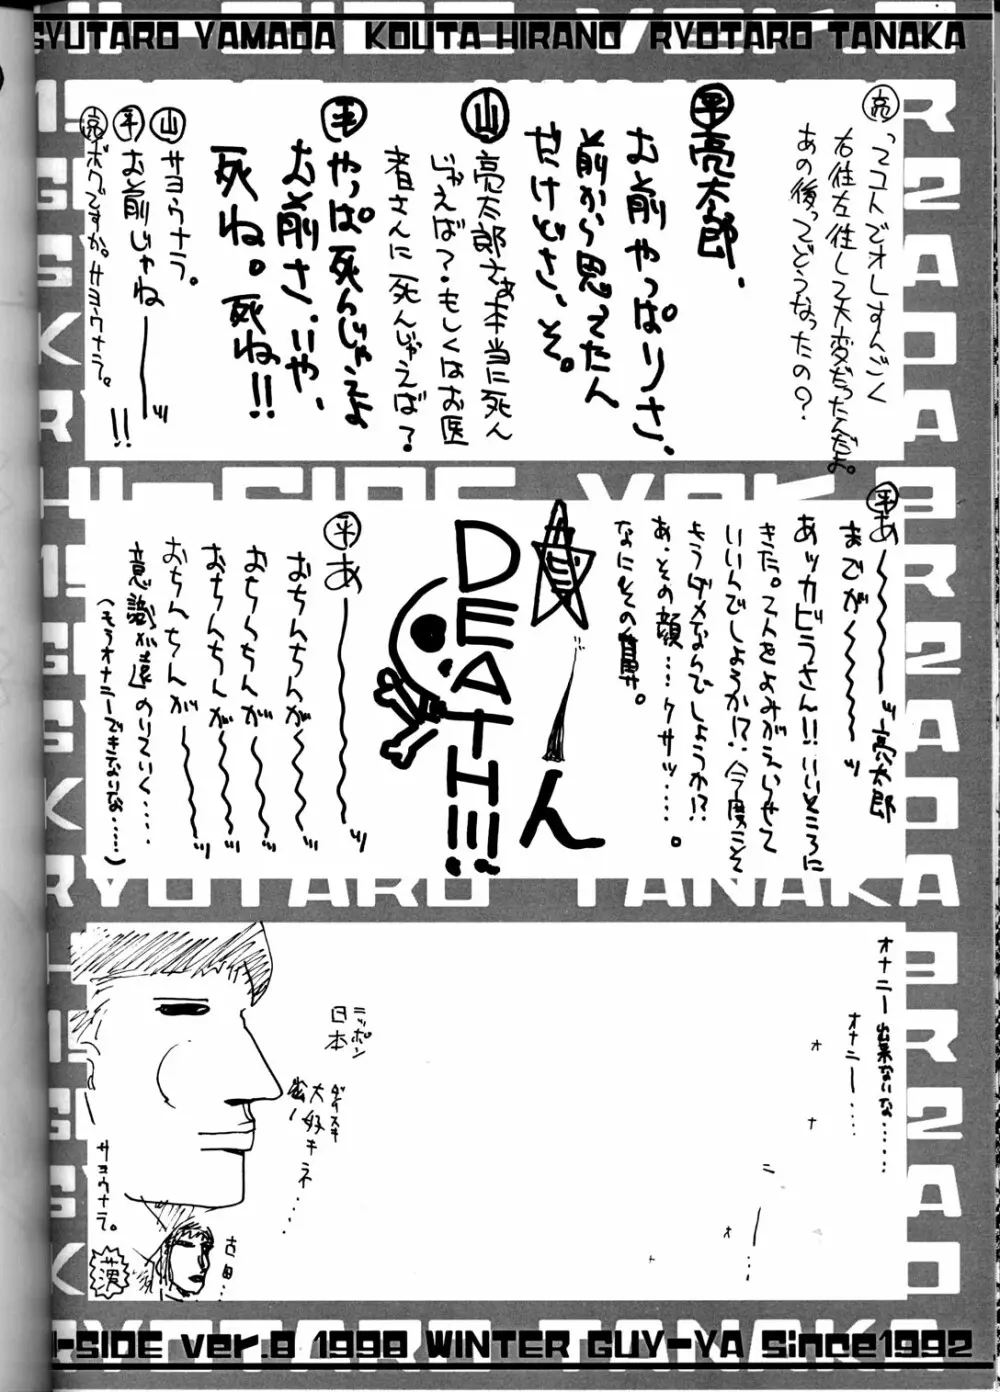 GYUTARO YAMADA KOUTA HIRANO RYOTARO TANAKA
亮 ってコトでオレすんごく
右往左往して大変だったんだよ。
あの後ってどうなったの?
平 亮太郎、
お前やっぱりさ、
前から思ってたん
だけどさ、そ。
山 亮太郎さぁ本当に死ん
じゃえば?もしくはお医
者さんに死んじゃえば?
平 やっぱ死んじゃえよ
お前さ、いや、
死ね。死ね!!
山 サヨウナラ。
平 お前じゃね――ッ!!
亮 ボクですか。サヨウナラ。
平 あ〜〜〜〜ッ亮太郎
までが〜〜〜〜ッ
あッカビラさん!!いいところに
きた。2人をよみがえらせて
いいんでしょうか!?今度こそ
もうダメなんでしょうか!?
あ、その顔…クサッ……。
なにその
ん
DEATH!!!
平 あ――――ッ
おちんちんが〜〜〜〜ッ
おちんちんが〜〜〜〜ッ
おちんちんが〜〜〜〜ッ
おちんちんが〜〜〜〜ッ
意識が遠のいていく……
(もうオナニーできないな……)
オナニー出来ないな……
オナニー……
オ
ナ
ニ
ー
オ
…
ニッポン
日本
ダイスキ
大好キネ…
サヨウナラ。
古田…
H-SIDE ver.8 1998 WINTER GUY-YA Since1992